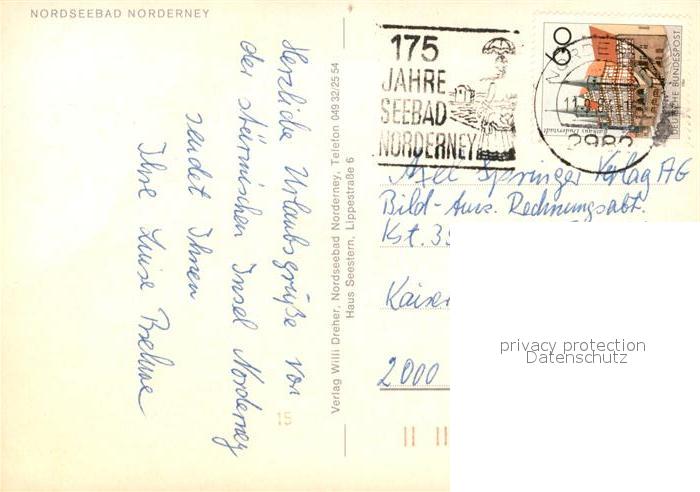 NORDSEEBAD NORDERNEY
Herzliche Urlaubsgrüße von
der stürmischen Insel Norderney
sendet Ihnen
Ihre Luise Boehme
15
Verlag Willi Dreher, Nordseebad Norderney, Telefon 04932/2554
Haus Seestern, Lippestraße 6
175
JAHRE
SEEBAD
NORDERNEY
60
DEUTSCHE BUNDESPOST
Rathaus Duderstadt
2982
Axel Springer Verlag AG
Bild-Anz. Rechnungsabt.
Kst.
Kaiser
2000
privacy protection
Datenschutz